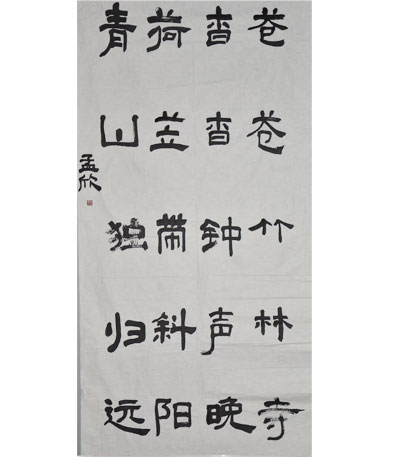 苍苍竹林寺
杳杳钟声晚
荷笠带斜阳
青山独归远
孟欣